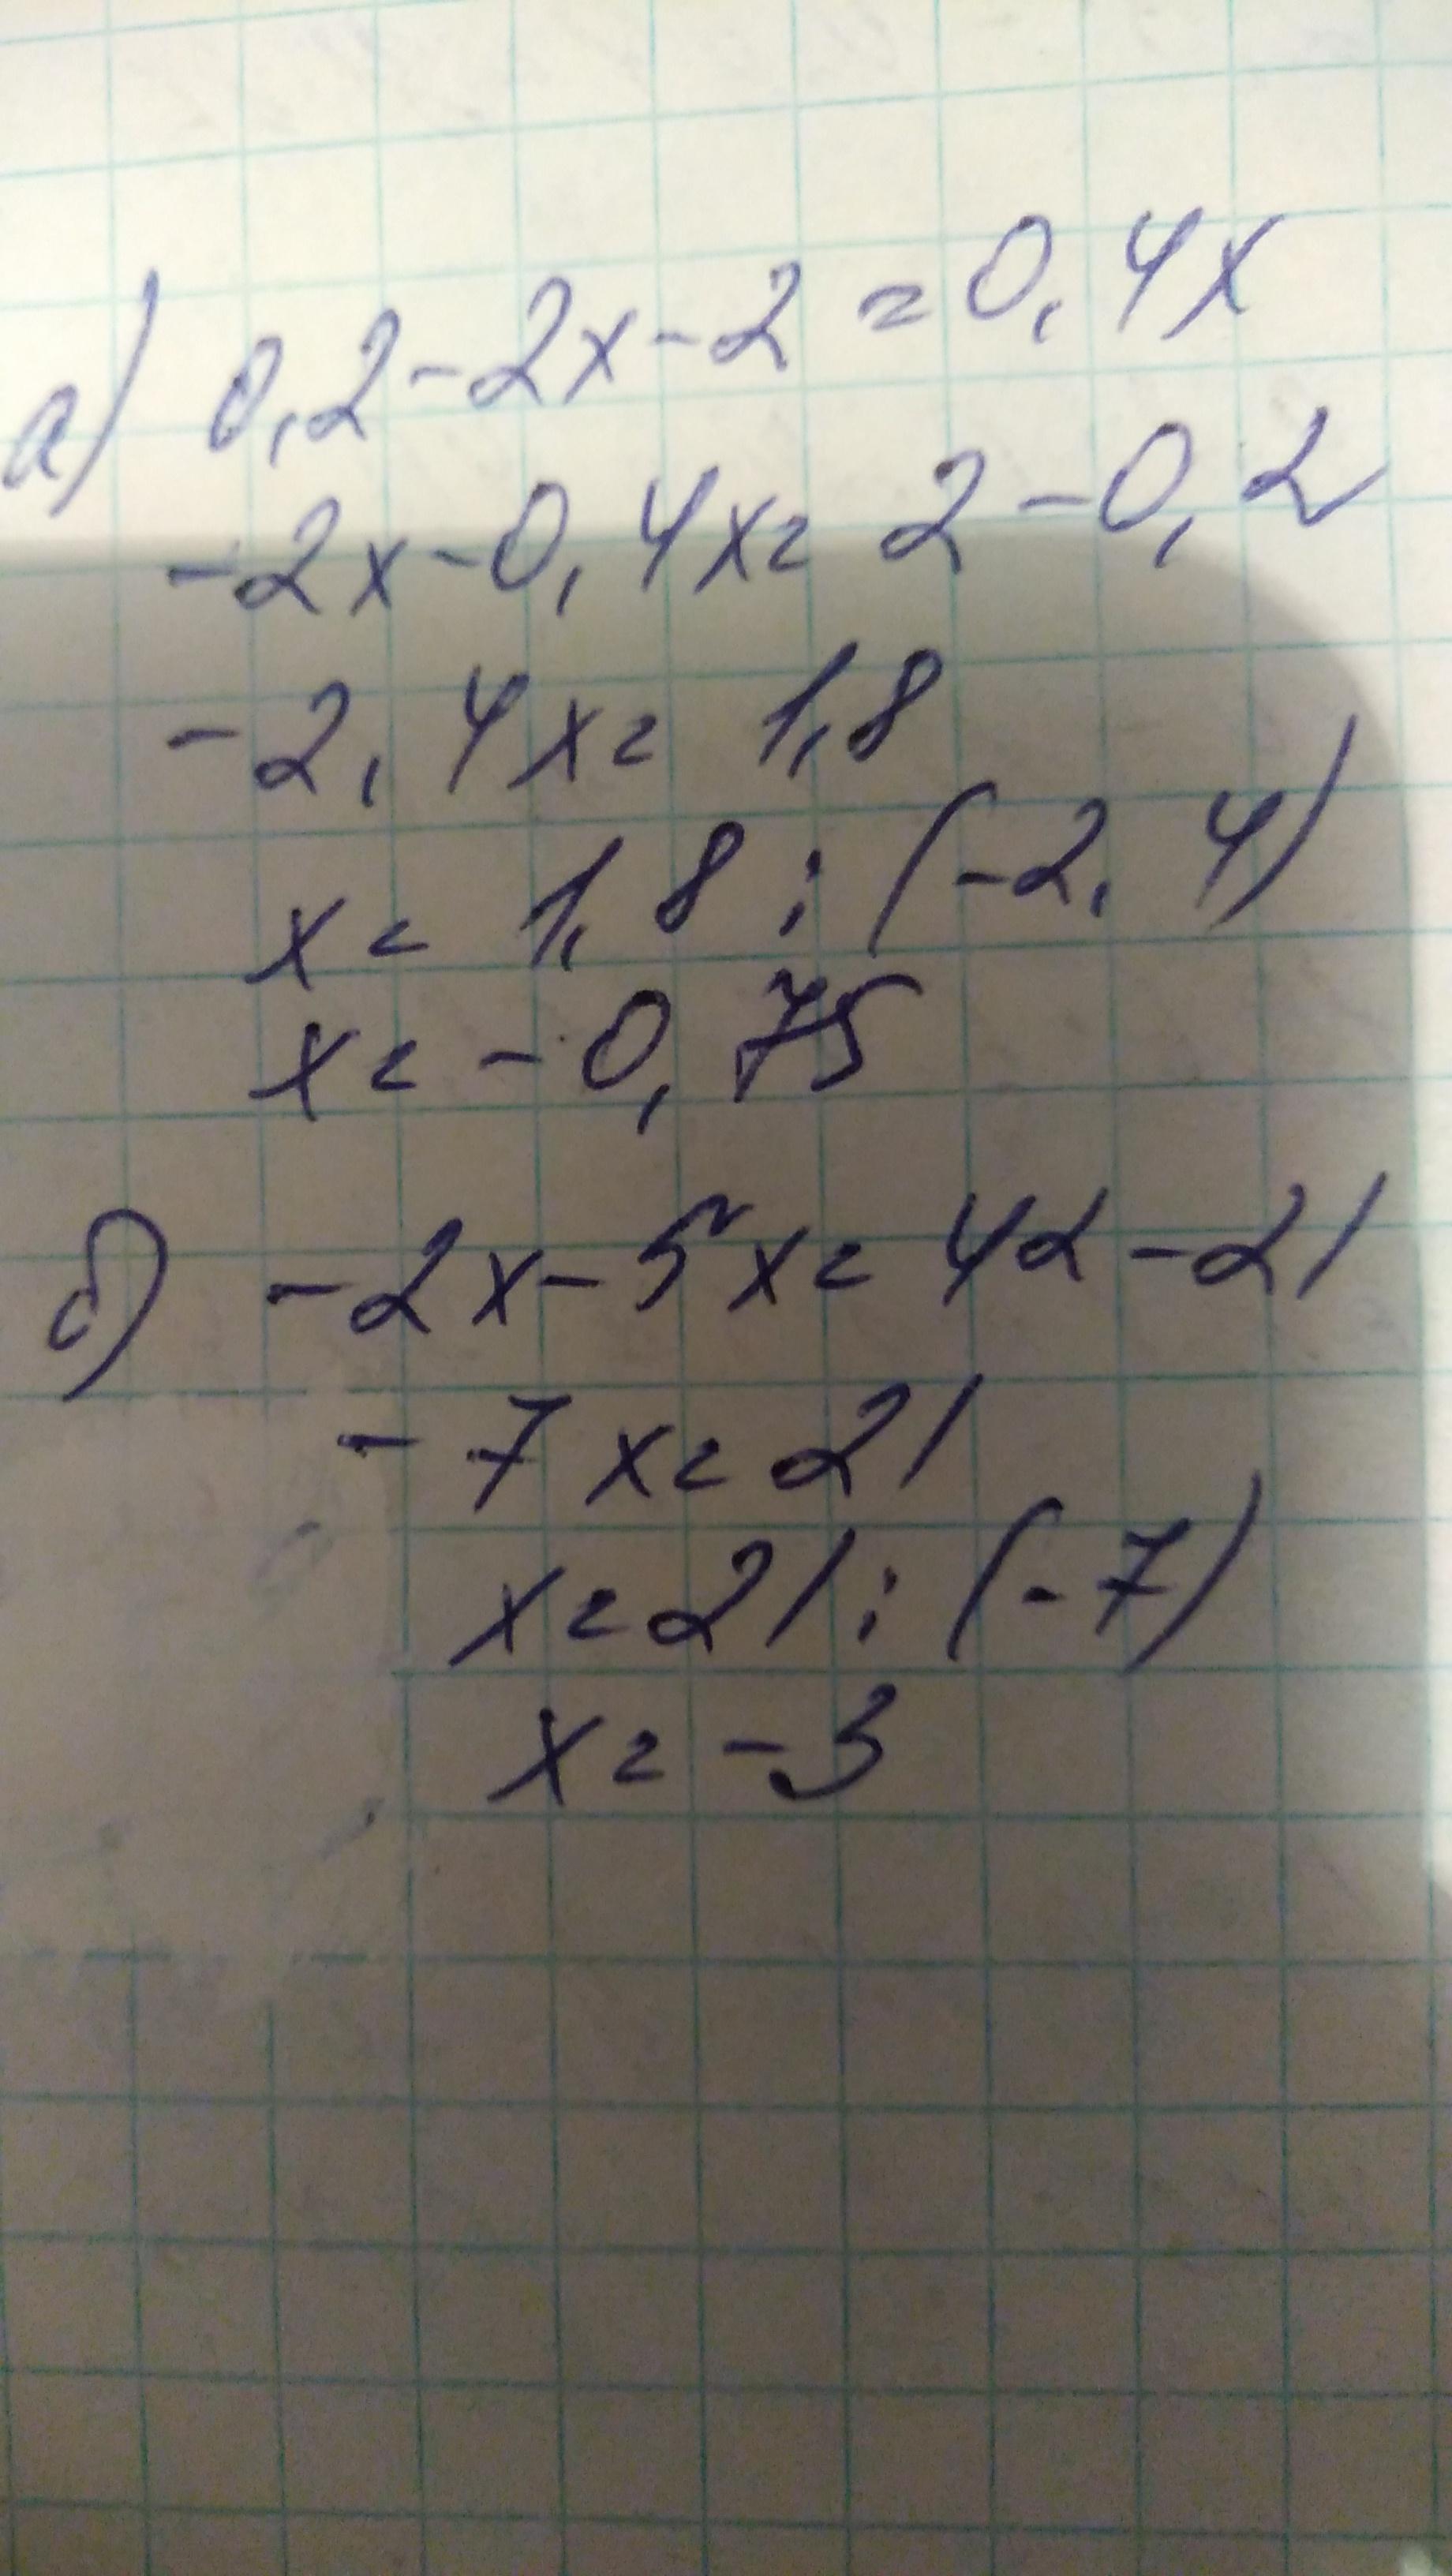 а) 0,2-2x-2=0,4x
-2x-0,4x=2-0,2
-2,4x=1,8
x=1,8:(-2,4)
x=-0,75
б) -2x-5x=42-21
-7x=21
x=21:(-7)
x=-3